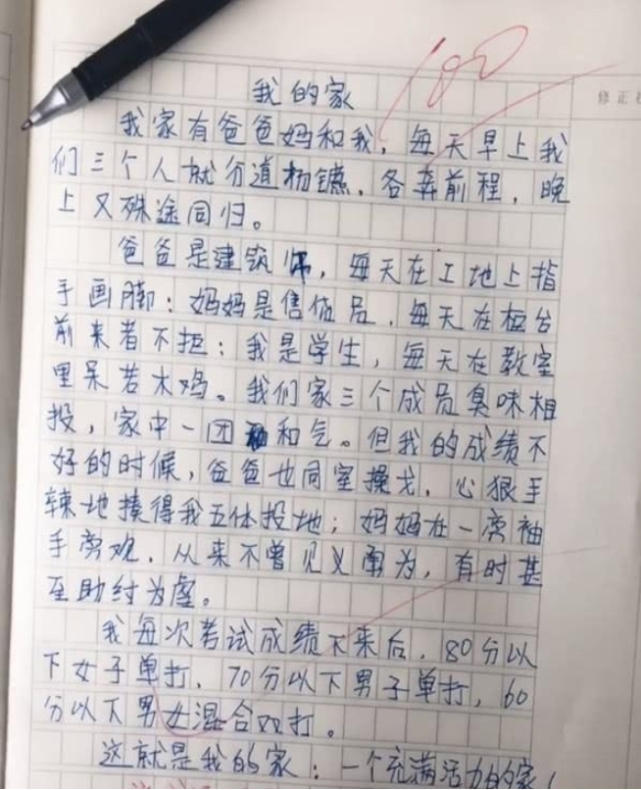 100
我的家
修正
我家有爸爸妈和我，每天早上我
们三个人就分道扬镳，各奔前程，晚
上又殊途同归。
爸爸是建筑师，每天在工地上指
手画脚；妈妈是售货员，每天在柜台
前来者不拒；我是学生，每天在教室
里呆若木鸡。我们家三个成员臭味相
投，家中一团和气。但我的成绩不
好的时候，爸爸也同室操戈，心狠手
辣地揍得我五体投地；妈妈在一旁袖
手旁观，从来不曾见义勇为，有时甚
至助纣为虐。
我每次考试成绩下来后，80分以
下女子单打，70分以下男子单打，60
分以下男女混合双打。
这就是我的家：一个充满活力的家！